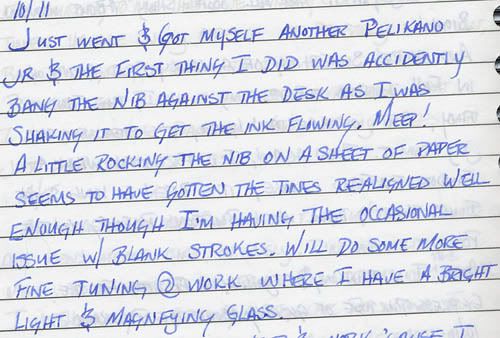 10/11
Just went & got myself another Pelikano
Jr & the first thing I did was accidently
bang the nib against the desk as I was
shaking it to get the ink flowing. Meep!
A little rocking the nib on a sheet of paper
seems to have gotten the tines realigned well
enough though I'm having the occasional
issue w/ blank strokes. Will do some more
fine tuning @ work where I have a bright
light & magnefying glass.
& work 'cause I